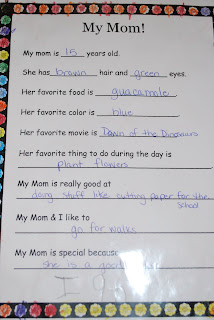 My Mom!
My mom is 15 years old.
She has brown hair and green eyes.
Her favorite food is guacamole.
Her favorite color is blue.
Her favorite movie is Dawn of the Dinosaurs
Her favorite thing to do during the day is
plant flowers
My Mom is really good at
doing stuff like cutting paper for the
school
My Mom & I like to
go for walks
My Mom is special because
she is a good
I